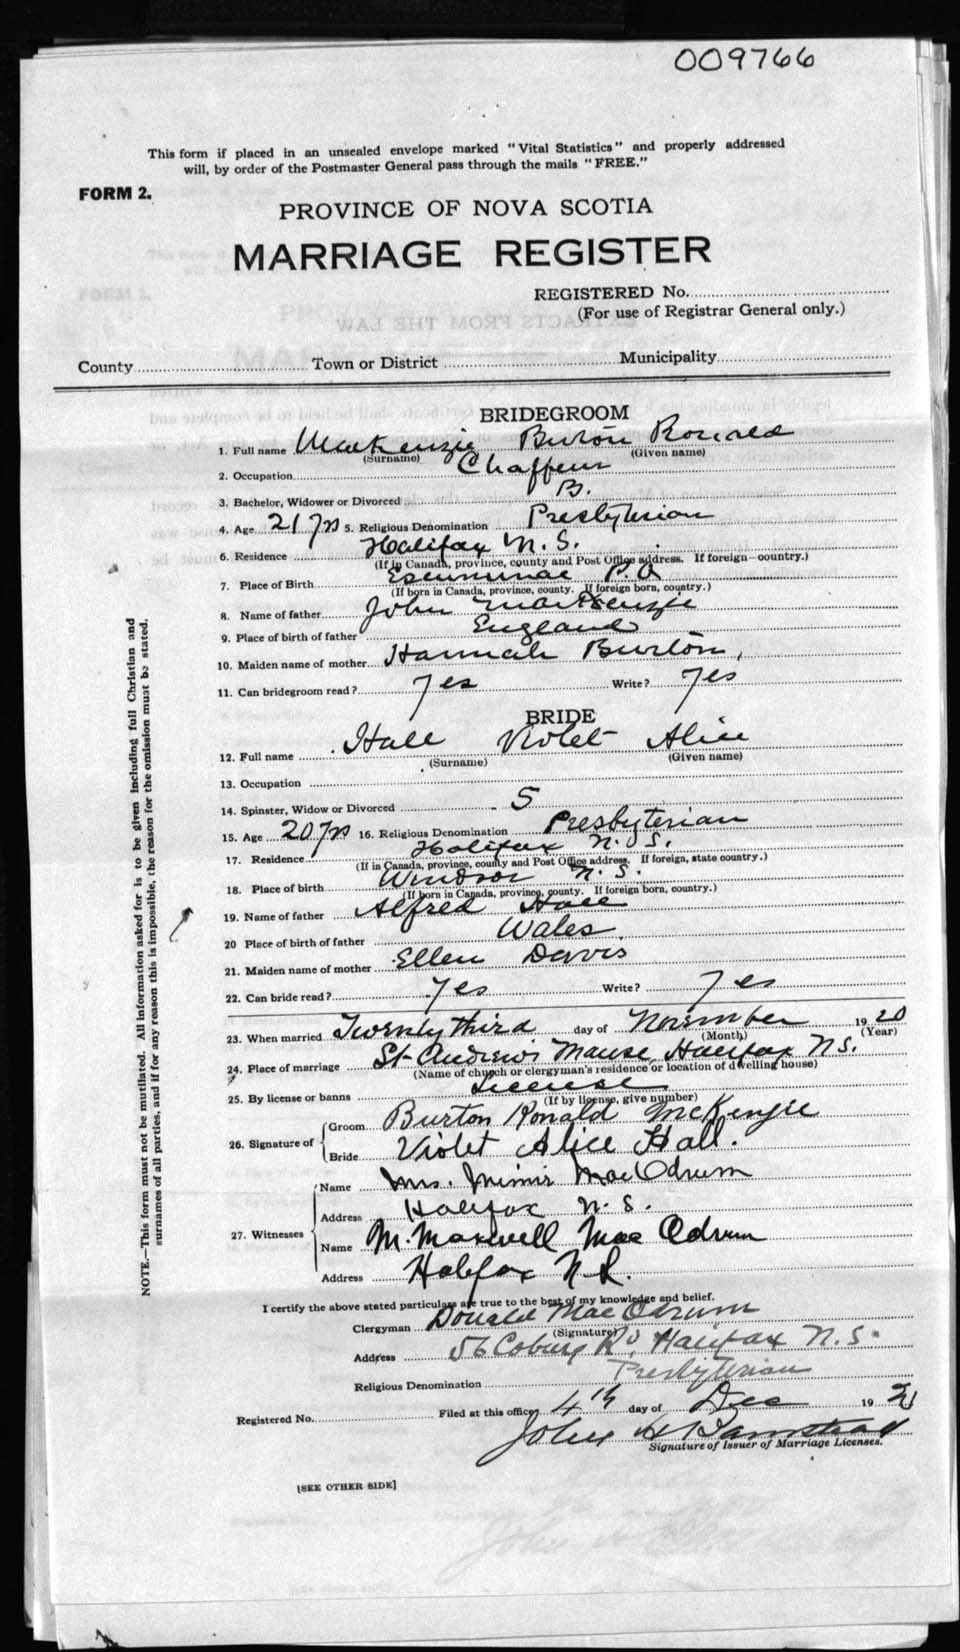 009766
This form if placed in an unsealed envelope marked "Vital Statistics" and properly addressed
will, by order of the Postmaster General pass through the mails "FREE."
FORM 2.
PROVINCE OF NOVA SCOTIA
MARRIAGE REGISTER
REGISTERED No.
(For use of Registrar General only.)
County Town or District Municipality
BRIDEGROOM
1. Full name MacKenzie Burton Ronald
(Surname) (Given name)
2. Occupation Chaffeur
3. Bachelor, Widower or Divorced B.
4. Age 21 yrs 5. Religious Denomination Presbyterian
6. Residence Halifax N.S.
(If in Canada, province, county and Post Office address. If foreign—country.)
7. Place of Birth Escuminac P.Q
(If born in Canada, province, county. If foreign born, country.)
8. Name of father John MacKenzie
9. Place of birth of father England
10. Maiden name of mother Hannah Burton,
11. Can bridegroom read? Yes Write? Yes
BRIDE
12. Full name Hall Violet Alice
(Surname) (Given name)
13. Occupation
14. Spinster, Widow or Divorced S
15. Age 20 yrs 16. Religious Denomination Presbyterian
17. Residence Halifax N.S.
(If in Canada, province, county and Post Office address. If foreign, state country.)
18. Place of birth Windsor N.S.
(If born in Canada, province, county. If foreign born, country.)
19. Name of father Alfred Hall
20 Place of birth of father Wales.
21. Maiden name of mother Ellen Davis
22. Can bride read? Yes Write? Yes
23. When married Twenty third day of November 1920
(Month) (Year)
24. Place of marriage St Andrew's Manse, Halifax N.S.
(Name of church or clergyman's residence or location of dwelling house)
25. By license or banns License
(If by license, give number)
26. Signature of Groom Burton Ronald McKenzie
Bride Violet Alice Hall.
27. Witnesses Name Mrs. MacOdrum
Address Halifax N.S.
Name M. Maxwell MacOdrum
Address Halifax N.S.
I certify the above stated particulars are true to the best of my knowledge and belief.
Clergyman Donald MacOdrum
(Signature)
Address 56 Coburg Rd, Halifax N.S.
Religious Denomination Presbyterian
Registered No. Filed at this office 4th day of Dec 19
John H
Signature of Issuer of Marriage Licenses.
[SEE OTHER SIDE]
NOTE.—This form must not be mutilated. All information asked for is to be given including full Christian and
surnames of all parties, and if for any reason this is impossible, the reason for the omission must be stated.